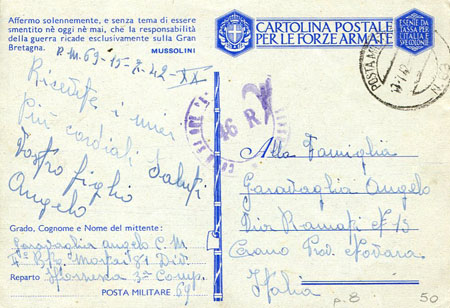 Affermo solennemente, e senza tema di essere
smentito nè oggi nè mai, che la responsabilità
della guerra ricade esclusivamente sulla Gran
Bretagna. MUSSOLINI
P.M. 69-15-7-42-XX
Ricevete i miei
più cordiali saluti
Vostro figlio
Angelo
Grado, Cognome e Nome del mittente:
Garavaglia Angelo C.M
Btg. 81 Div.
Reparto 3ª Comp.
POSTA MILITARE 69
CARTOLINA POSTALE
PER LE FORZE ARMATE
ESENTE DA
TASSA PER
L'ITALIA E
SUE COLONIE
POSTA
N. 69
46 R
Alla Famiglia
Garavaglia Angelo
Via N° 15
Cerano Prov. Novara
Italia
p. 8
50